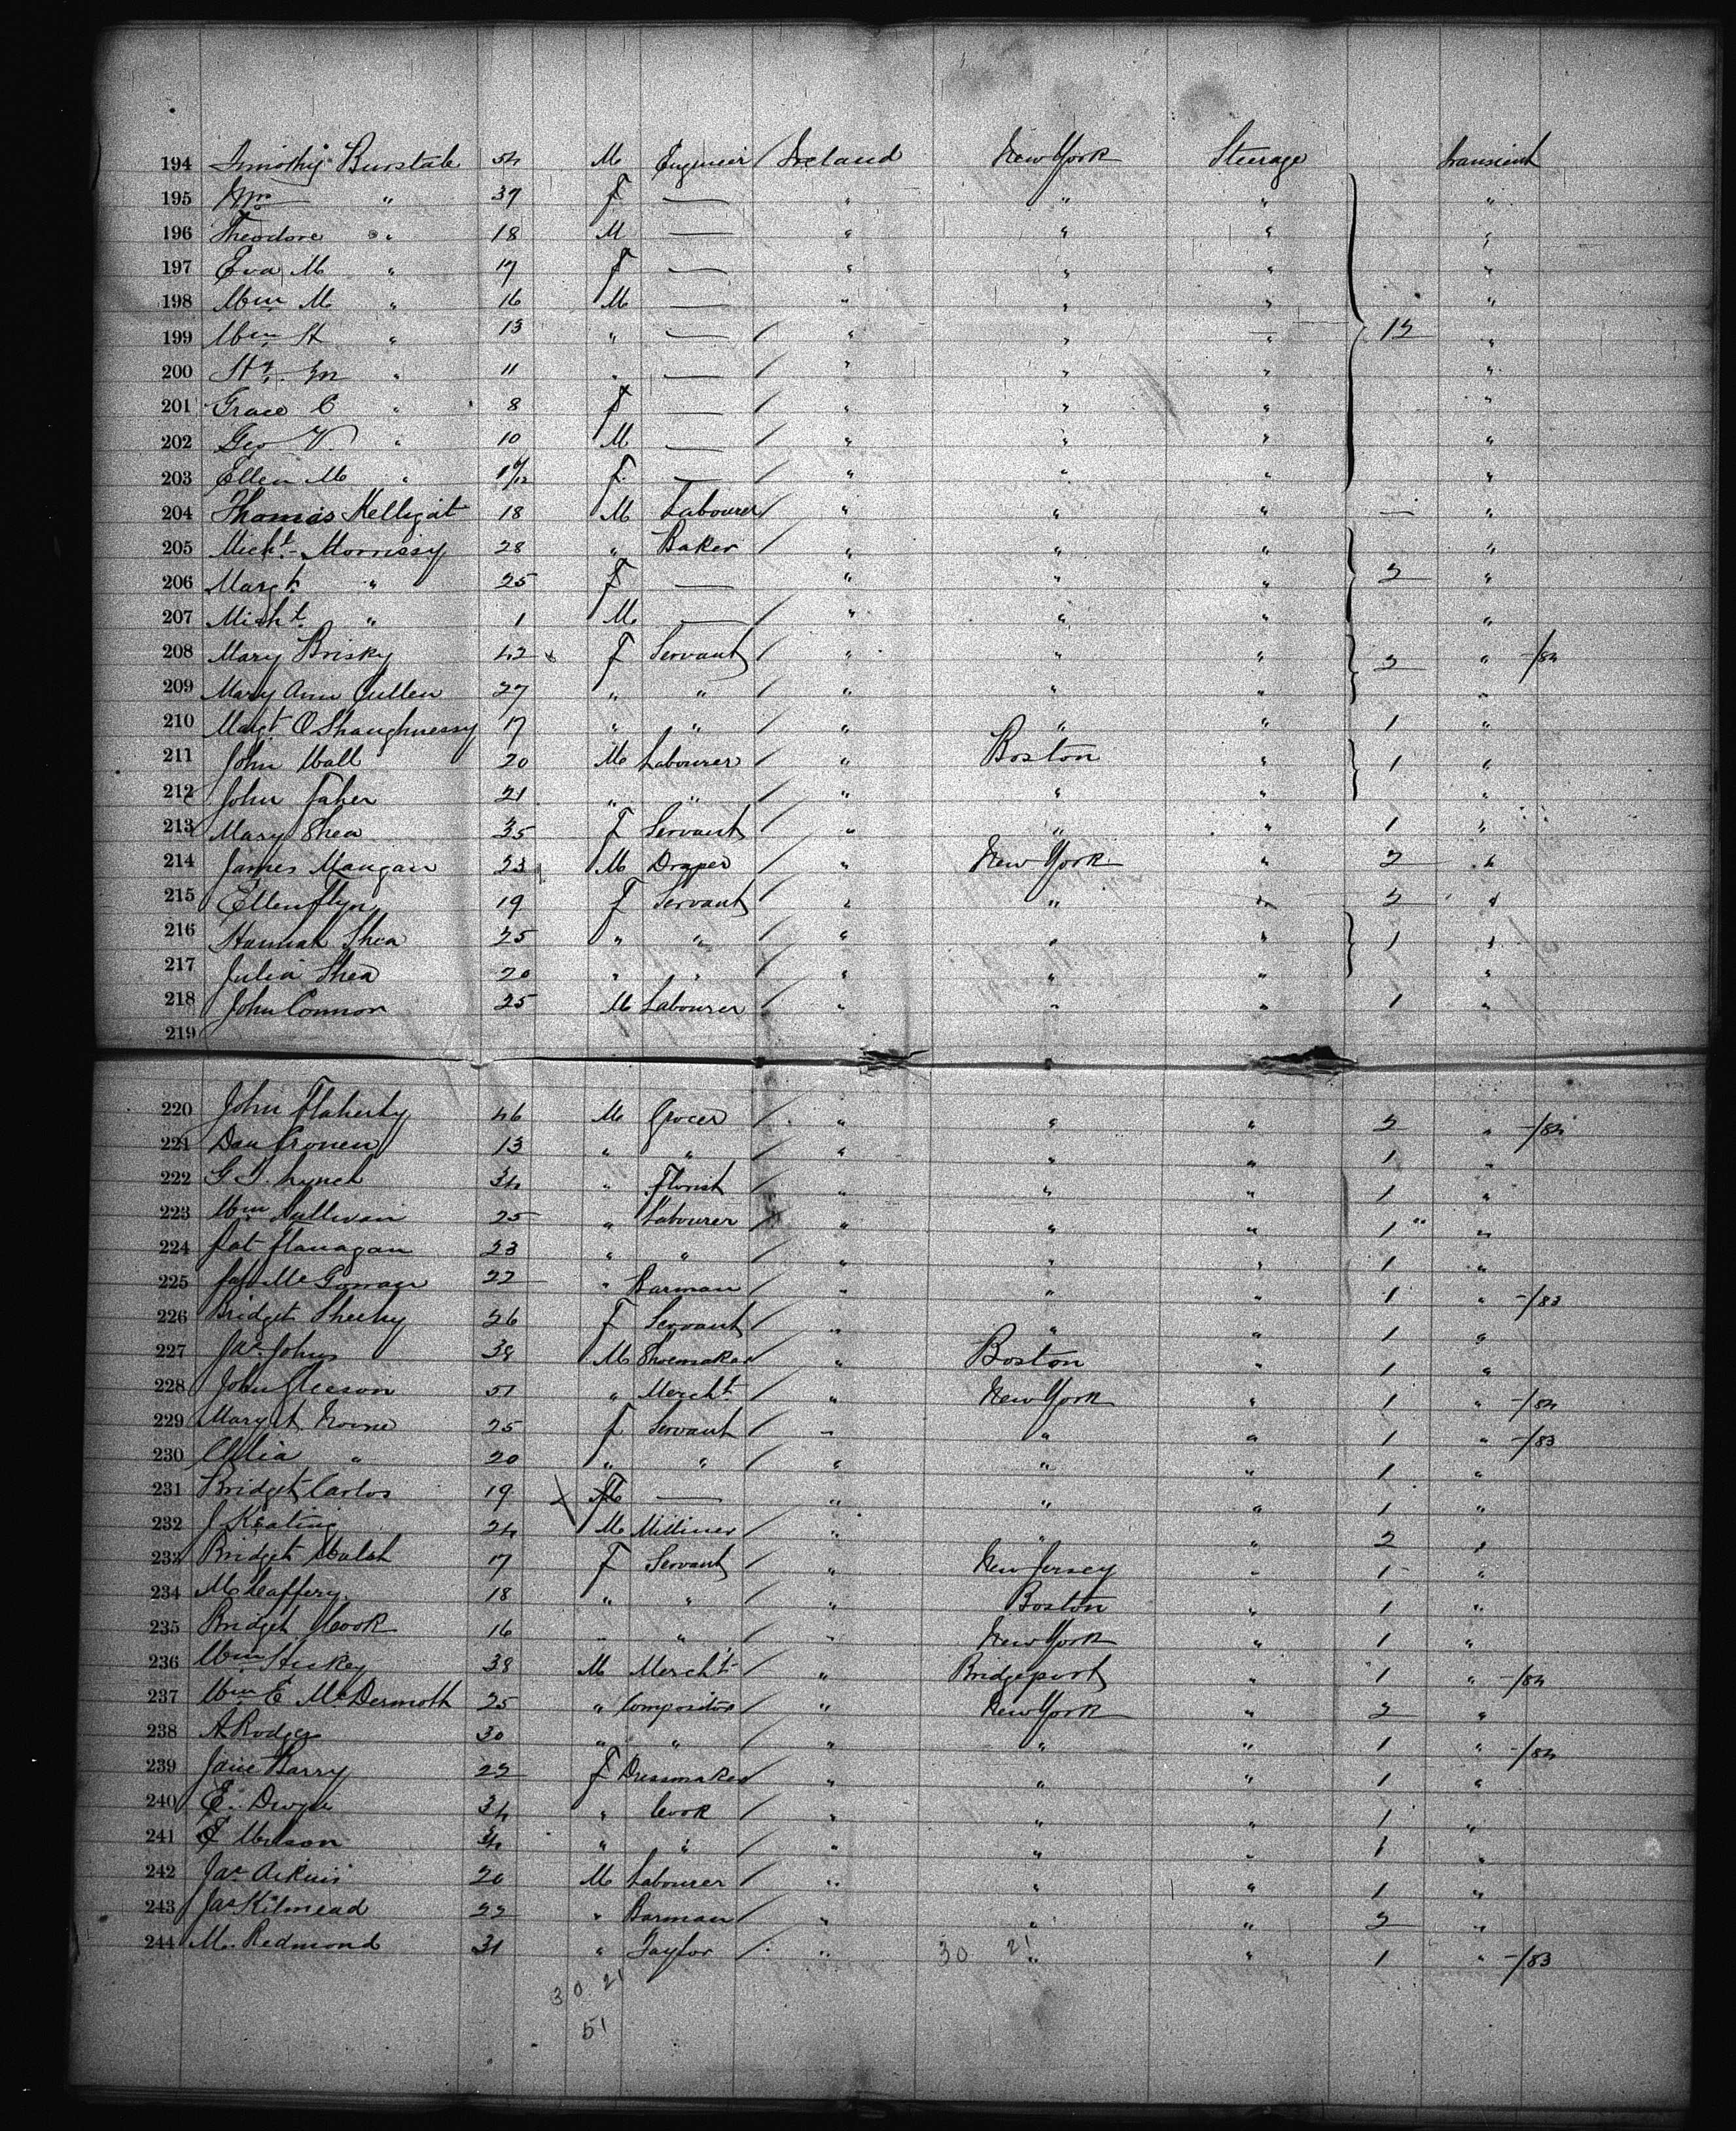 194 Timothy Burstale 54 M Engineer / Ireland New York Steerage transient
195 Mrs " 37 F — " " " "
196 Theodore " 18 M — " " " "
197 Eva M " 17 F — " " " "
198 Wm M " 16 M — " " " "
199 Wm H " 13 " — / " " " 12 "
200 " 11 " — / " " " "
201 Grace C " 8 F — / " " " "
202 Geo V. " 10 M — / " " " "
203 Ellen M " F — " " " "
204 Thomas Kelligat 18 M Labourer / " " " — "
205 Michl. Morrissy 28 " Baker / " " " "
206 Margt. " 25 F — " " " 2 "
207 Michl. " 1 M — / " " " "
208 Mary Brisky 42 F Servant / " " " 2 " -/84
209 Mary Ann Cullen 27 " " / " " " "
210 Margt O'Shaughnessy 17 " " / " " " 1 "
211 John Wall 20 M Labourer / " Boston " 1 "
212 John Faher 21 " " / " " " "
213 Mary Shea 35 F Servant / " " " 1 "
214 James Mangan 23 M Draper / " New York " 2 "
215 Ellen Flyn 19 F Servant " " " 2 "
216 Hannah Shea 25 " " / " " " 1 "
217 Julia Shea 20 " " / " " " "
218 John Connor 25 M Labourer / " " " 1 "
219
220 John Flaherty 46 M Grocer / " " " 2 " -/84
221 Dan Cronen 13 " " / " " " 1 "
222 G T. Lynch 34 " Florist / " " " 1 "
223 Wm Sullivan 25 " Labourer / " " " 1 "
224 Pat Flanagan 23 " " / " " " 1 "
225 Jas McGowan 22 " Barman / " " " 1 " -/83
226 Bridget Sheehy 26 F Servant / " " " 1 "
227 Jas. Johns 38 M Shoemaker " Boston " 1 "
228 John Gleeson 51 " Mercht / " New York " 1 " -/84
229 Margt. 25 F Servant / " " " 1 " -/83
230 Celia " 20 " " / " " " 1 "
231 Bridget Carlos 19 F — " " " 1 "
232 J Keating 24 M Milliner / " " " 2 "
233 Bridget Walsh 17 F Servant / " New Jersey " 1 "
234 McCaffery 18 " " / " Boston " 1 "
235 Bridget Cook 16 " " / " New York " 1 "
236 Wm Hickey 38 M Mercht / " Bridgeport " 1 " -/84
237 Wm E McDermoth 25 " Compositor / " New York " 2 "
238 A Rodger 30 " " / " " " 1 " -/84
239 Jane Barry 22 F Dressmaker " " " 1 "
240 E. Dwyer 34 " Cook / " " " 1 "
241 34 " " / " " " 1 "
242 Jas Aikins 20 M Labourer / " " " 1 "
243 Jas Kilmead 22 " Barman / " " " 2 "
244 M. Redmond 31 " Taylor / " 30 21 " " 1 " -/83
30. 21
51